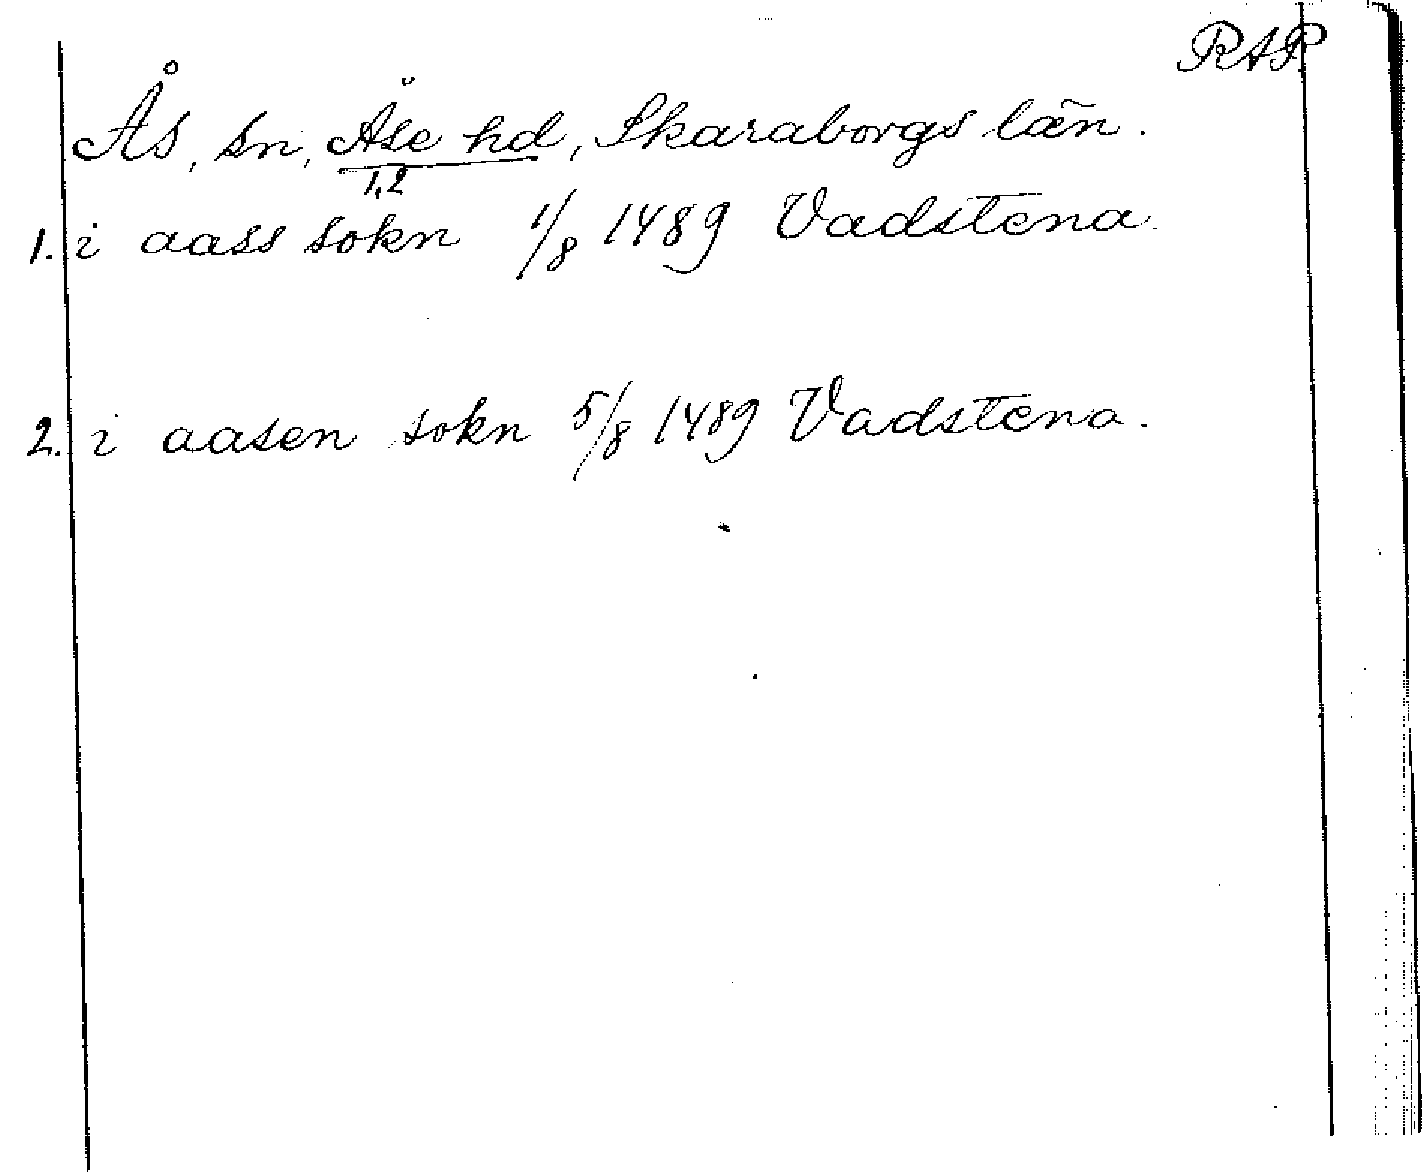 RAP
Ås, sn, Åse hd, Skaraborgs län.
1,2
1. i aass sokn 1/8 1489 Vadstena.
2. i aasen sokn 5/8 1489 Vadstena.